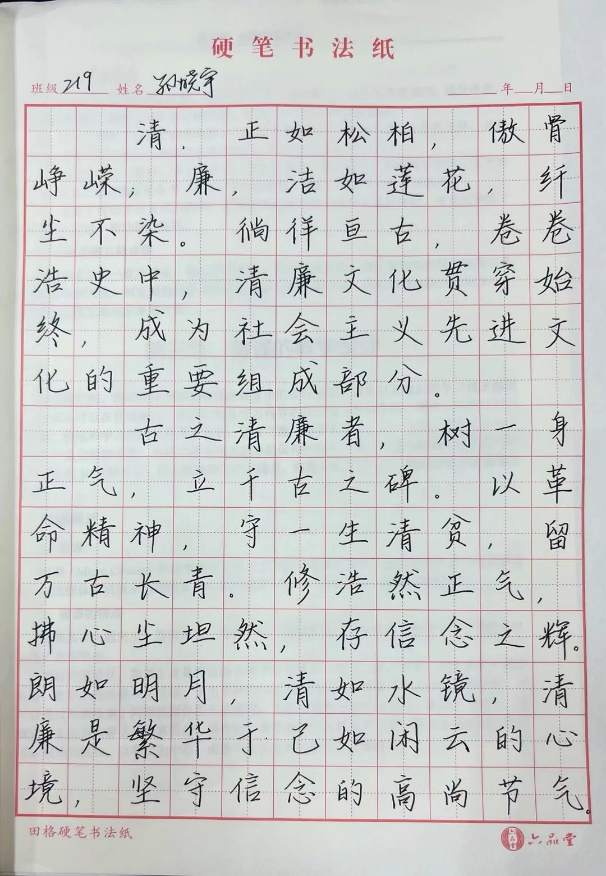 硬笔书法纸
班级 219 姓名 孙晓宇 年 月 日
清，正如松柏，傲骨
峥嵘；廉，洁如莲花，纤
尘不染。徜徉亘古，卷卷
浩史中，清廉文化贯穿始
终，成为社会主义先进文
化的重要组成部分。
古之清廉者，树一身
正气，立千古之碑。以革
命精神，守一生清贫，留
万古长青。修浩然正气，
拂心尘坦然，存信念之辉。
朗如明月，清如水镜，清
廉是繁华于己如闲云的心
境，坚守信念的高尚节气。
田格硬笔书法纸 六品堂